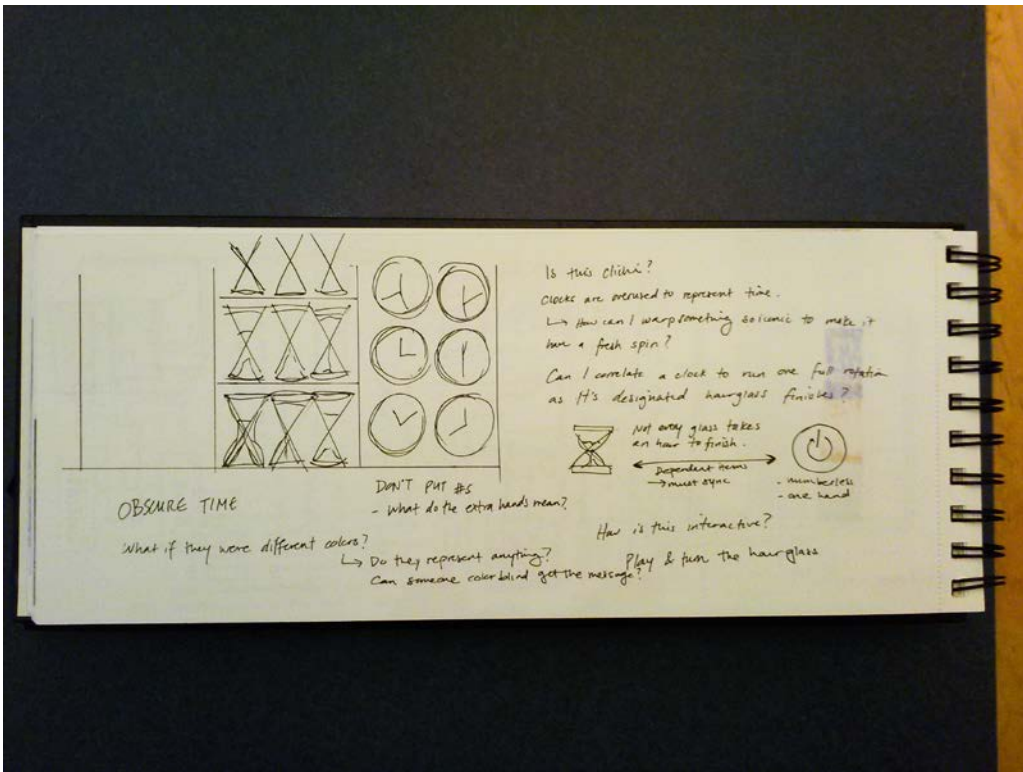 Is this cliché?
Clocks are overused to represent time.
↳ How can I warp something so iconic to make it
have a fresh spin?
Can I correlate a clock to run one full rotation
as it's designated hourglass finishes?
Not every glass takes
an hour to finish.
Dependent items
→ must sync
- numberless
- one hand
DON'T PUT #S
- What do the extra hands mean?
OBSCURE TIME
What if they were different colors?
↳ Do they represent anything?
Can someone colorblind get the message?
How is this interactive?
Play & turn the hourglass